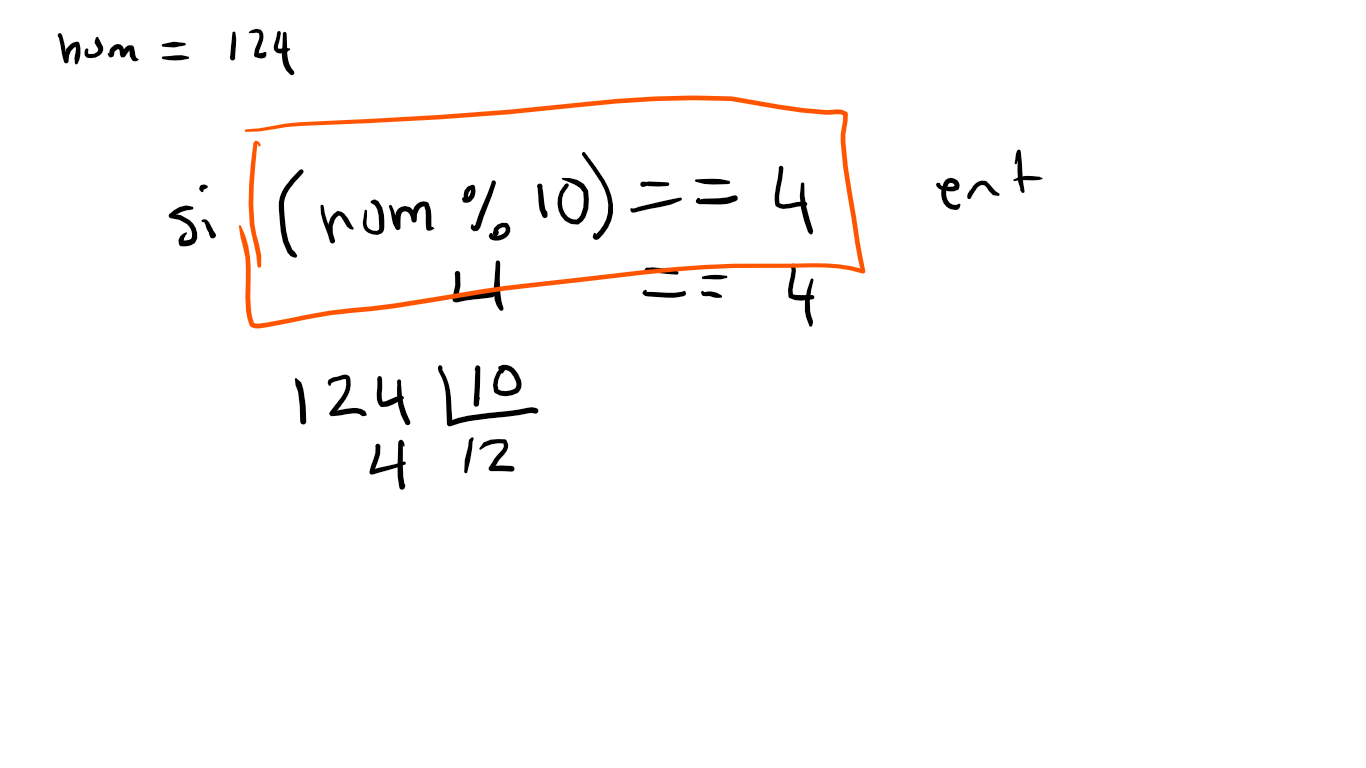 num = 124
si (num % 10) == 4 ent
4 == 4
124 10
4 12